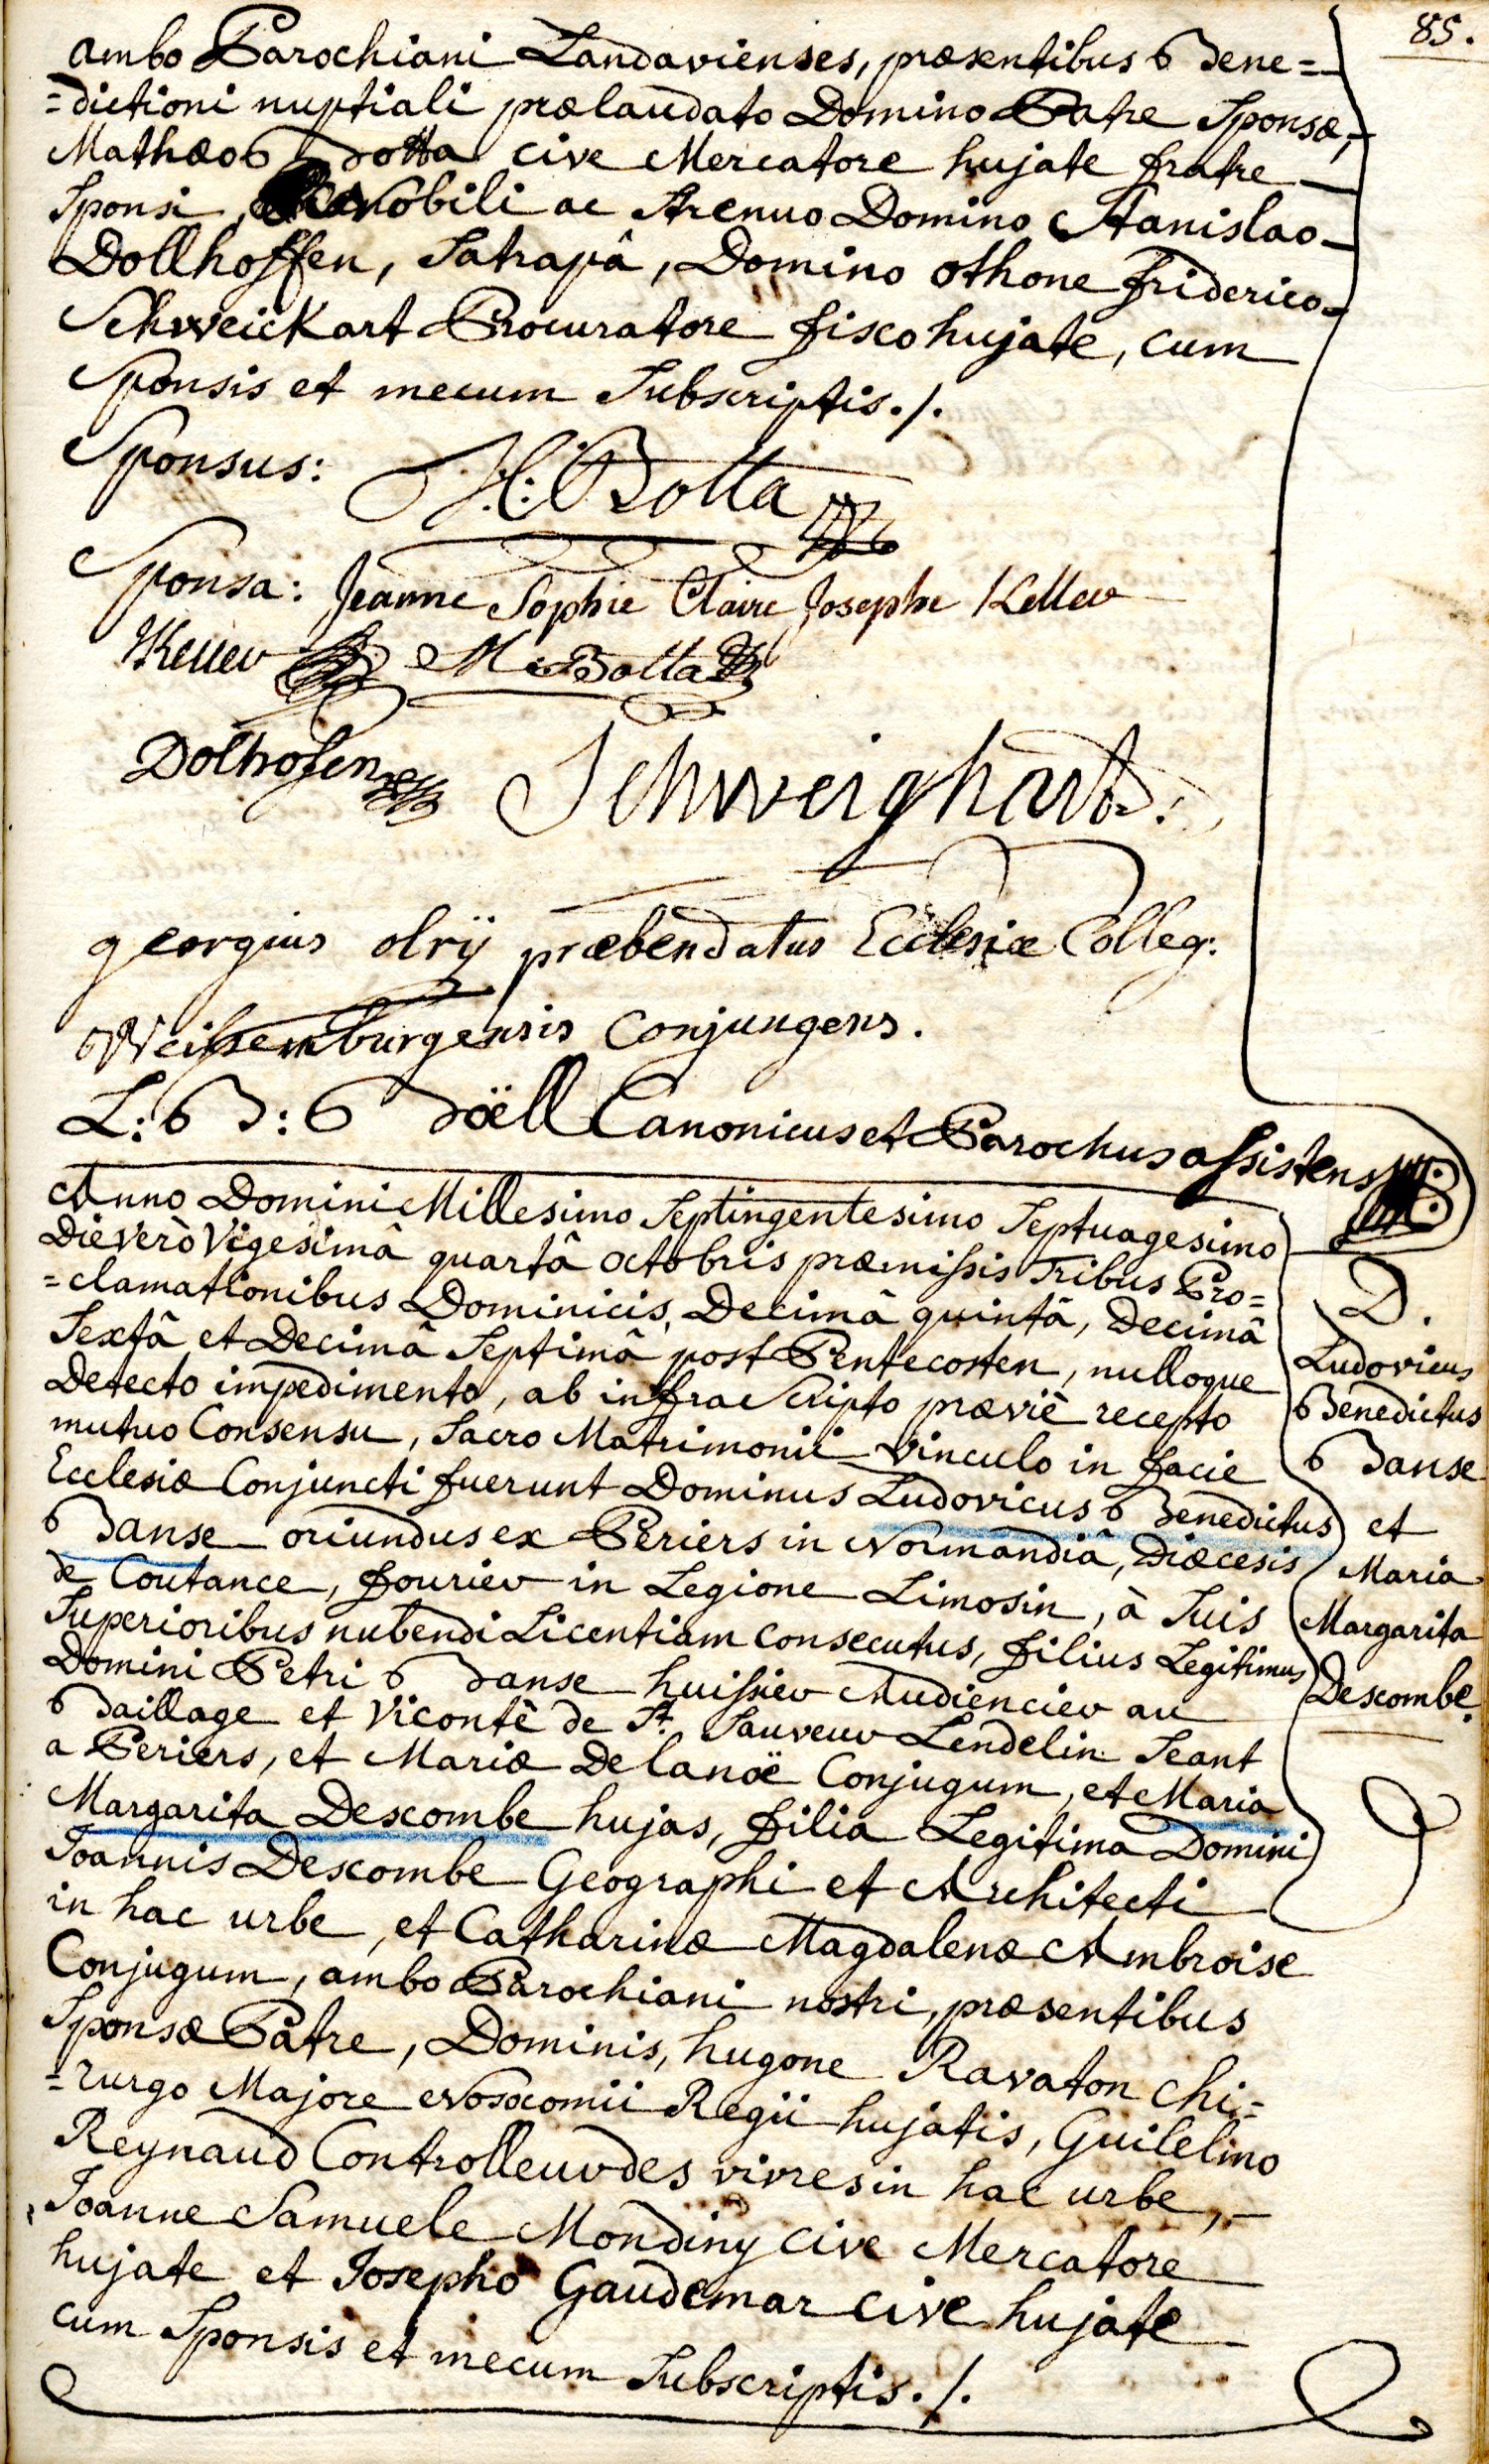 85.
ambo Parochiani Landavienses, præsentibus Bene=
=dictioni nuptiali prælaudato Domino Patre Sponsæ,
Mathæo Botta cive Mercatore hujate fratre
Sponsi, Nobili ac Strenuo Domino Stanislao
Dollhoffen, Satrapâ, Domino Othone Friderico
Schweickart Procuratore fisco hujate, cum
Sponsis et mecum Subscriptis ./.
Sponsus: H: Botta
Sponsa: Jeanne Sophie Claire Josephe Keller
Keller M Botta
Dolhofen Schweighart.
georgius olrÿ præbendatus Ecclesiæ Colleg:
Weissemburgensis Conjungens.
L: B: Böell Canonicus et Parochus assistens
Anno Domini Millesimo Septingentesimo Septuagesimo
Die verò Vigesimâ quartâ octobris præmissis Tribus Pro=
=clamationibus Dominicis, Decimâ quintâ, Decimâ
Sextâ et Decimâ Septimâ post Pentecosten, nulloque
Detecto impedimento, ab infra Scripto præviè recepto
mutuo Consensu, Sacro Matrimonii vinculo in facie
Ecclesiæ Conjuncti fuerunt Dominus Ludovicus Benedictus
Banse oriundus ex Periers in Normandiâ, Diæcesis
de Coutance, fourier in Legione Limosin, à Suis
Superioribus nubendi Licentiam consecutus, filius Legitimus
Domini Petri Banse huissier Audiencier au
Baillage et Vicontê de St. Sauveur Lendelin Seant
a Periers, et Mariæ Delanoë Conjugum, et Maria
Margarita Descombe hujas, filia Legitima Domini
Joannis Descombe Geographi et Architecti
in hac urbe, et Catharinæ Magdalenæ Ambroise
Conjugum, ambo Parochiani nostri, præsentibus
Sponsæ Patre, Dominis, hugone Ravaton Chi=
=rurgo Majore Nosocomii Regii hujatis, Guilelmo
Reynaud Controlleur des vivres in hac urbe,
Joanne Samuele Mondiny cive Mercatore
hujate et Josepho Gaudemar cive hujate
cum Sponsis et mecum Subscriptis ./.
D.
Ludovicus
Benedictus
Banse
et
Maria
Margarita
Descombe.